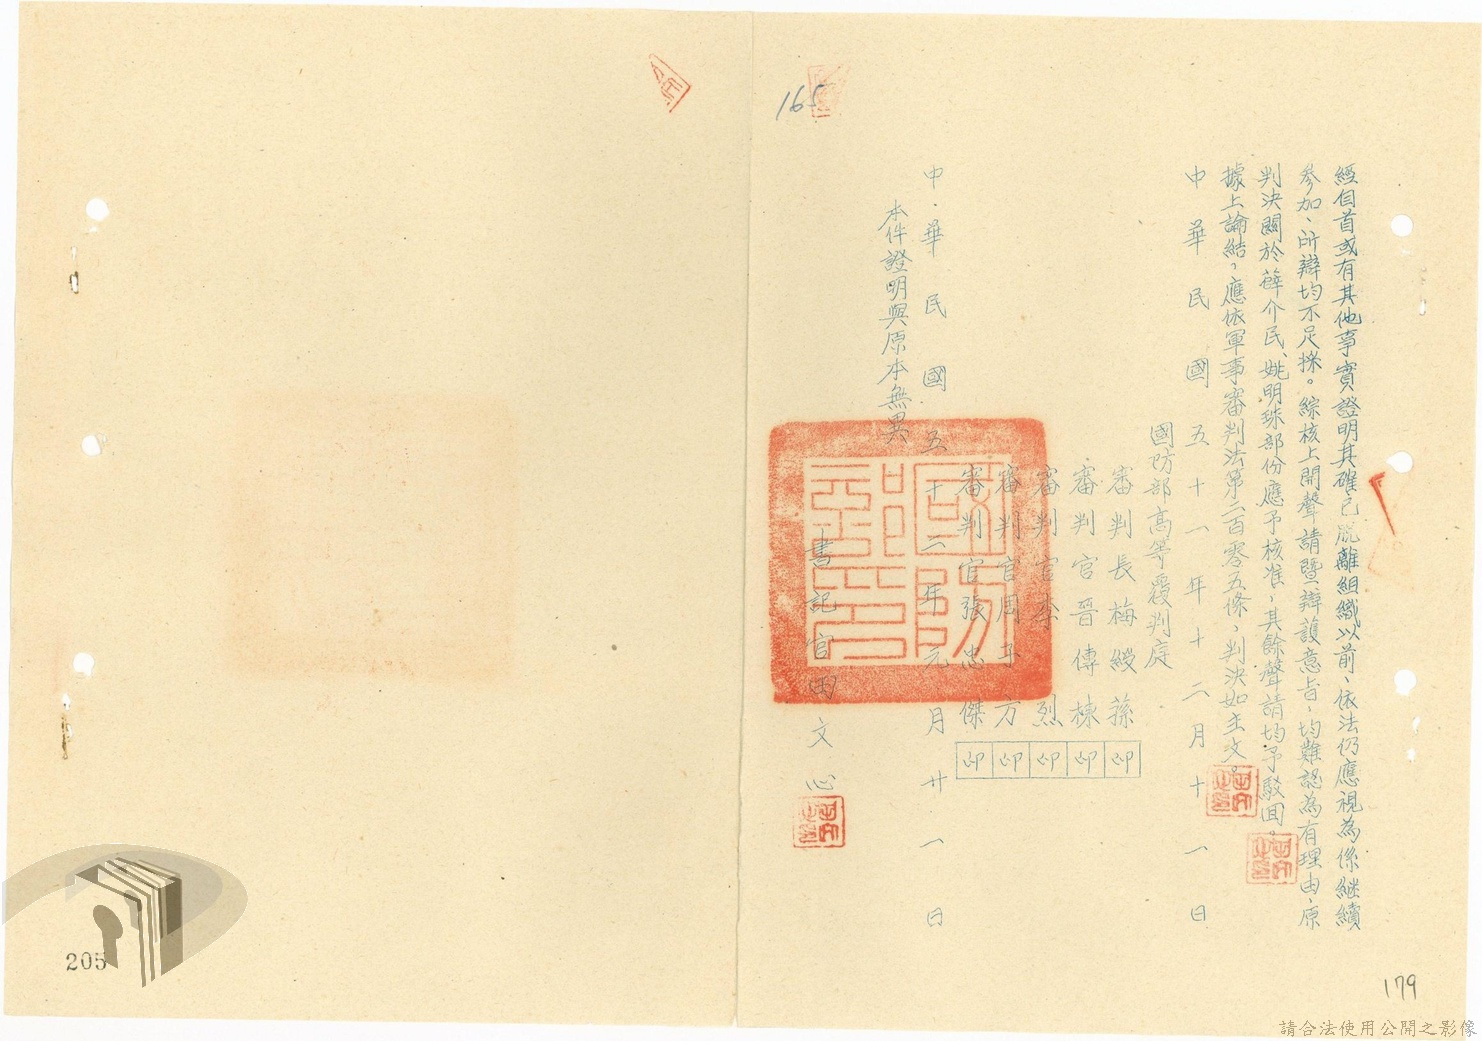 165
經自首或有其他事實證明其確已脫離組織以前，依法仍應視為係繼續
參加、所辯均不足採。綜核上開聲請暨辯護意旨，均難認為有理由，原
判決關於薛介民、姚明珠部份應予核准，其餘聲請均予駁回。
據上論結，應依軍事審判法第二百零五條，判決如主文。
中華民國五十一年十二月十一日
國防部高等覆判庭
審判長梅綬蓀印
審判官晋傳棟印
審判官李烈印
審判官周子方印
審判官張忠傑印
中華民國五十二年元月廿一日
本件證明與原本無異
書記官田文心
國防部印
179
205
請合法使用公開之影像